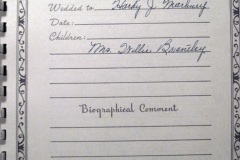 Wedded to Hardy J.
Date:
Children:
Mrs. Willie Brantley
Biographical Comment